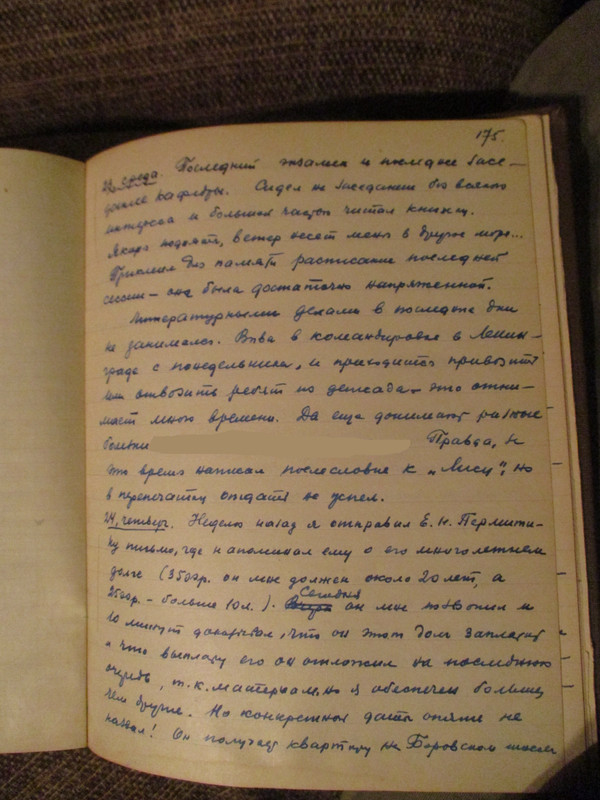 175.
23, среда. Последний экзамен и последнее засе-
дание кафедры. Сидел на заседании без всякого
интереса и большей частью читал книжку.
Якоря подняты, ветер несет меня в другое море...
Приклеил для памяти расписание последней
сессии — она была достаточно напряженной.
Литературными делами в последние дни
не занимался. Вива в командировке в Ленин-
граде с понедельника, и приходится привозить
или отвозить ребят из детсада. Это отни-
мает много времени. Да еще донимают разные
болячки Правда, за
это время написал послесловие к „Лису", но
в перепечатку отдать не успел.
24, четверг. Неделю назад я отправил Е. Н. Пермити-
ну письмо, где напоминал ему о его многолетнем
долге (350 др. он мне должен около 20 лет, а
250 др. – больше 10 л.). Сегодня он мне позвонил и
10 минут доказывал, что он этот долг заплатит
и что выплату его он отложил на последнюю
очередь, т. к. материально я обеспечен больше,
чем другие. Но конкретной даты опять не
назвал! Он получает квартиру на Боровском шоссе